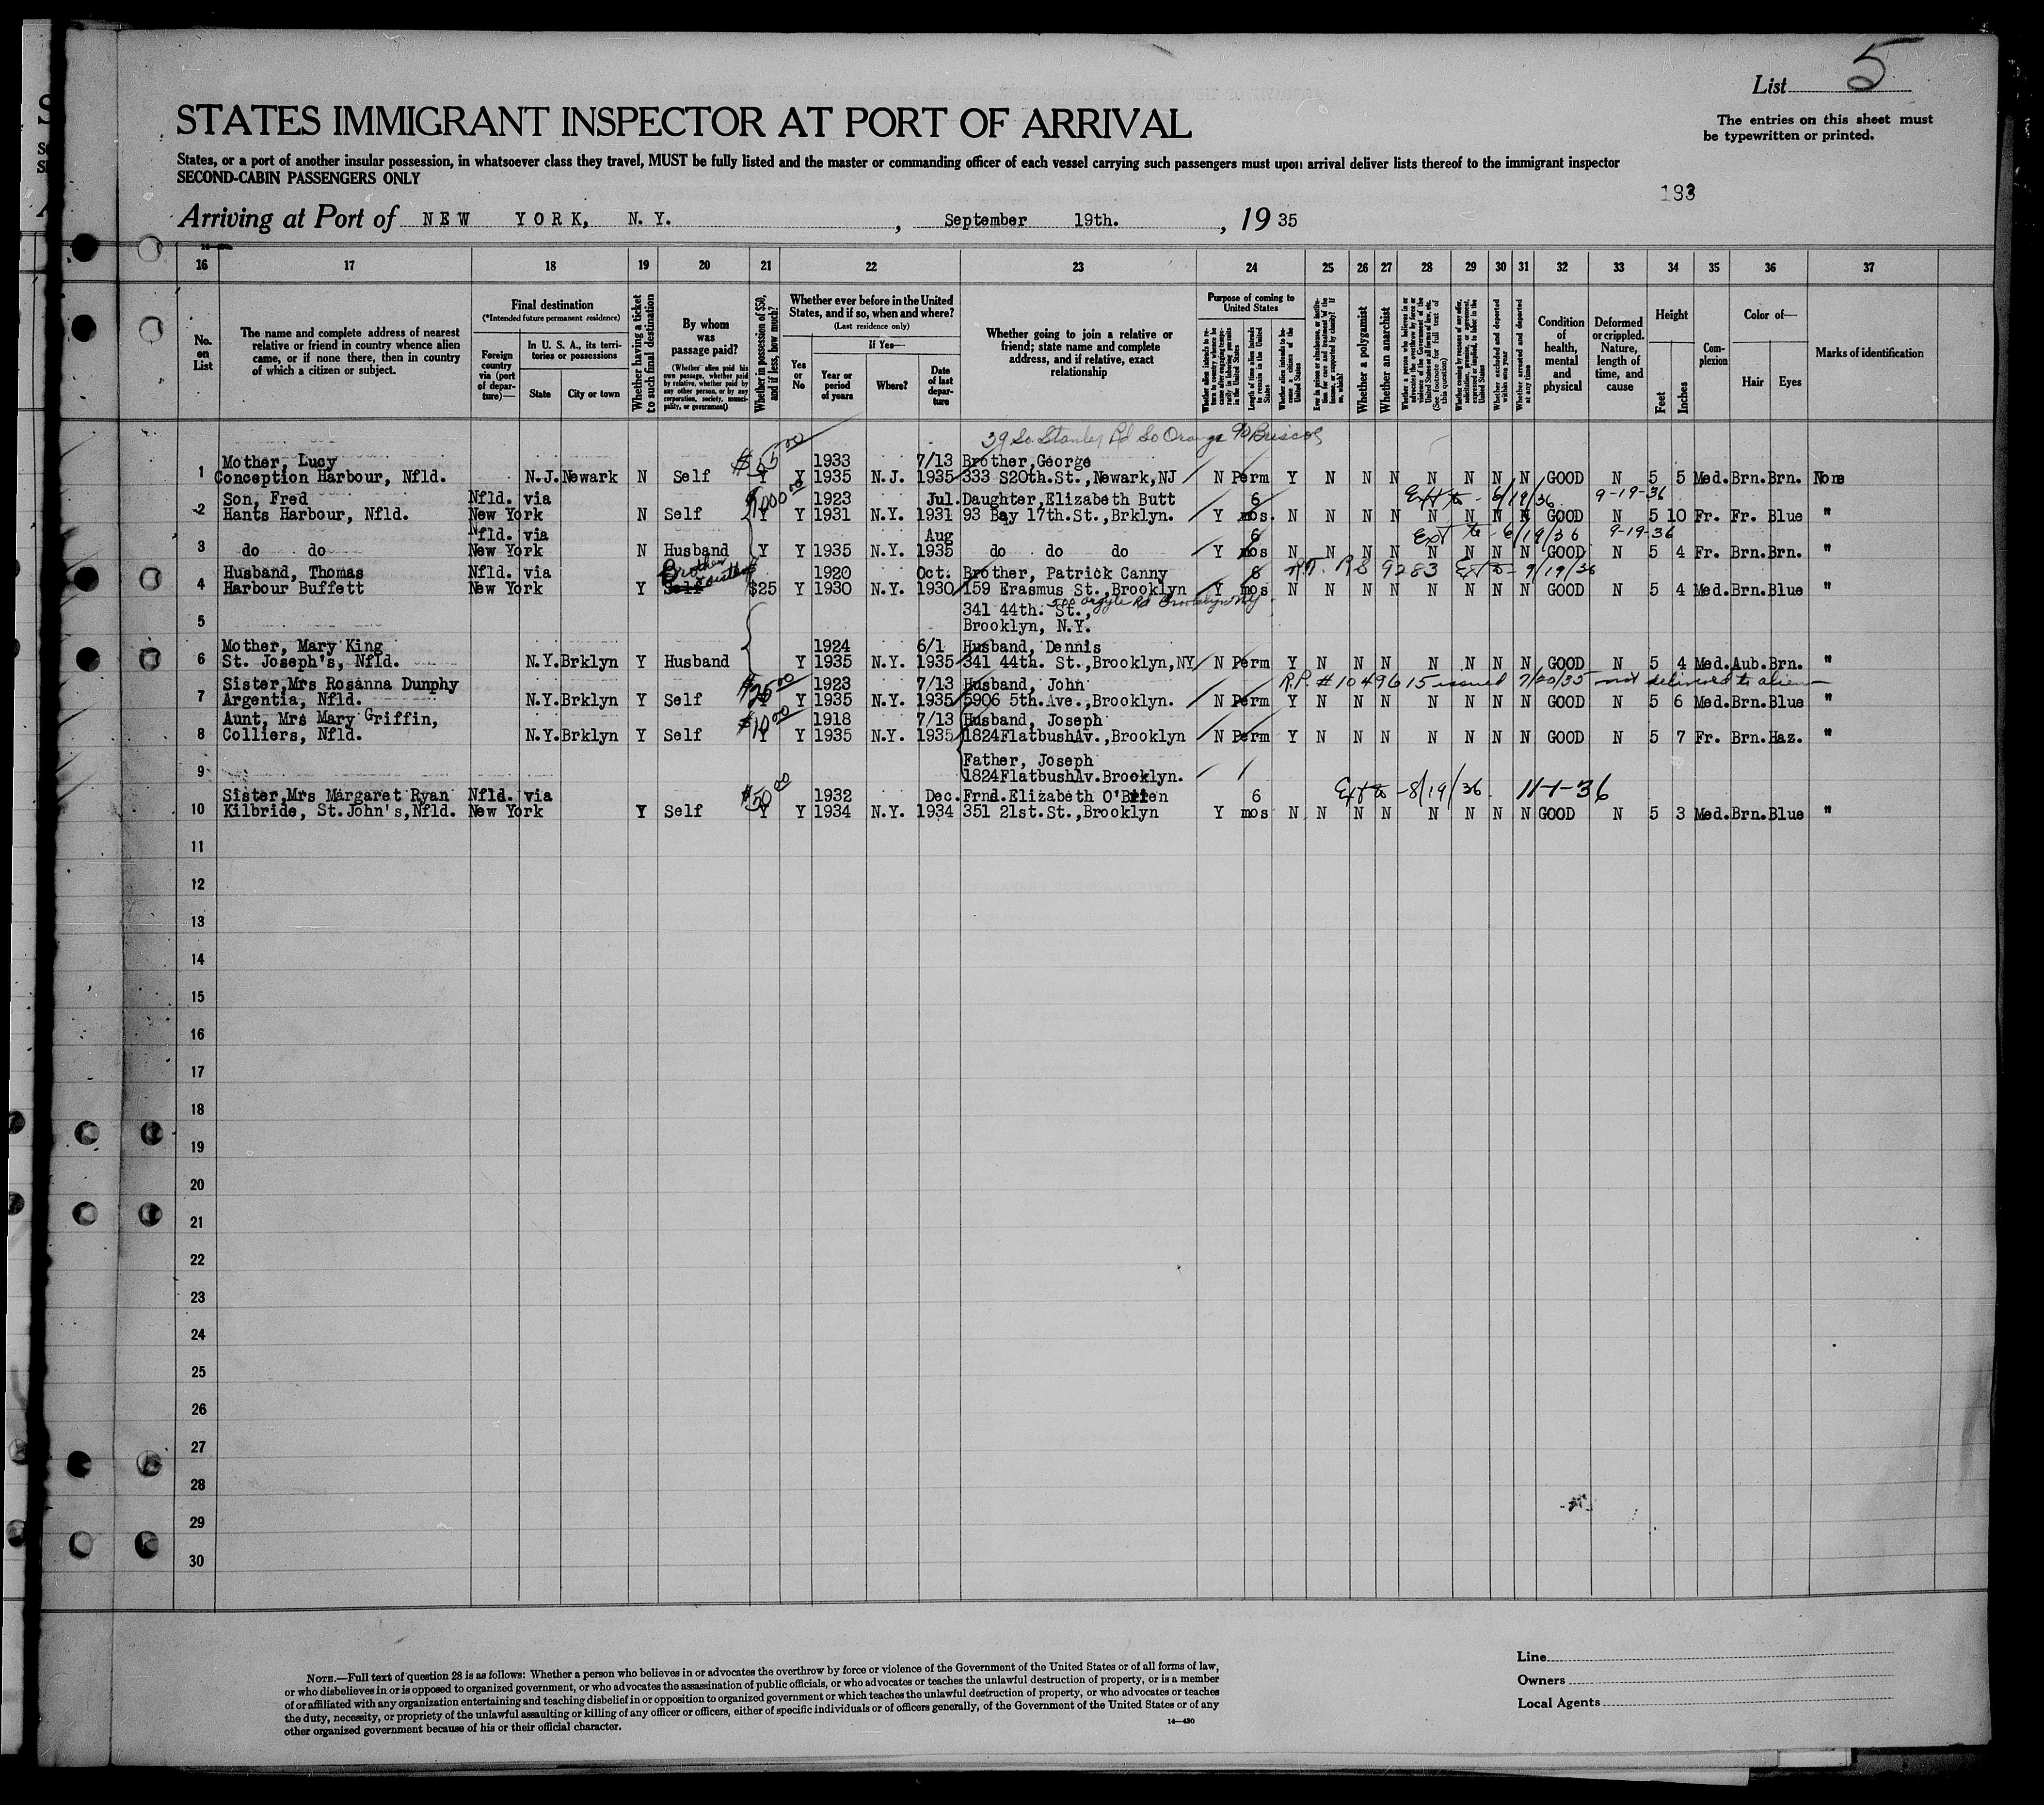 List 5
The entries on this sheet must
be typewritten or printed.
STATES IMMIGRANT INSPECTOR AT PORT OF ARRIVAL
States, or a port of another insular possession, in whatsoever class they travel, MUST be fully listed and the master or commanding officer of each vessel carrying such passengers must upon arrival deliver lists thereof to the immigrant inspector
SECOND-CABIN PASSENGERS ONLY
183
Arriving at Port of NEW YORK, N.Y. , September 19th. , 1935
16 17 18 19 20 21 22 23 24 25 26 27 28 29 30 31 32 33 34 35 36 37
No. on List
The name and complete address of nearest
relative or friend in country whence alien
came, or if none there, then in country
of which a citizen or subject.
Final destination
(*Intended future permanent residence)
Foreign country via (port of departure)—
In U. S. A., its territories or possessions
State
City or town
Whether having a ticket to such final destination
By whom was passage paid?
(Whether alien paid his own passage, whether paid by relative, whether paid by any other person, or by any corporation, society, municipality, or government)
Whether in possession of $50, and if less, how much?
Whether ever before in the United States, and if so, when and where?
(Last residence only)
Yes or No
If Yes—
Year or period of years
Where?
Date of last departure
Whether going to join a relative or
friend; state name and complete
address, and if relative, exact
relationship
Purpose of coming to United States
Whether a polygamist
Whether an anarchist
Whether excluded and deported within one year
Whether arrested and deported at any time
Condition of health, mental and physical
Deformed or crippled. Nature, length of time, and cause
Height
Feet
Inches
Complexion
Color of—
Hair
Eyes
Marks of identification
39 So. Stanley Rd So Orange c/o Briscoe
Mother, Lucy 1933 7/13 Brother, George
1 Conception Harbour, Nfld. N.J. Newark N Self Y Y 1935 N.J. 1935 333 S20th.St.,Newark,NJ N Perm Y N N N N N N N GOOD N 5 5 Med. Brn. Brn. None
Son, Fred Nfld. via 1923 Jul. Daughter, Elizabeth Butt 6 Ext to - 6/19/36 9-19-36
2 Hants Harbour, Nfld. New York N Self Y Y 1931 N.Y. 1931 93 Bay 17th.St.,Brklyn. Y mos. N N N N N N N N GOOD N 5 10 Fr. Fr. Blue "
Nfld. via Aug 6 Ext to - 6/19/36 9-19-36
3 do do New York N Husband Y Y 1935 N.Y. 1935 do do do Y mos N N N N N N N N GOOD N 5 4 Fr. Brn. Brn. "
Husband, Thomas Nfld. via Brother 1920 Oct. Brother, Patrick Canny 6 9283 Ext to 9/19/36
4 Harbour Buffett New York Y Self $25 Y 1930 N.Y. 1930 159 Erasmus St.,Brooklyn Y mos N N N N N N N N GOOD N 5 4 Med. Brn. Blue "
341 44th. St., 500 Argyle Rd Brooklyn NY
5 Brooklyn, N.Y.
Mother, Mary King 1924 6/1 Husband, Dennis
6 St. Joseph's, Nfld. N.Y. Brklyn Y Husband Y 1935 N.Y. 1935 341 44th. St.,Brooklyn,NY N Perm Y N N N N N N N GOOD N 5 4 Med. Aub. Brn. "
Sister,Mrs Rosanna Dunphy 1923 7/13 Husband, John R.P. #1049615 issued 7/20/35 not delivered to alien
7 Argentia, Nfld. N.Y. Brklyn Y Self Y Y 1935 N.Y. 1935 5906 5th.Ave.,Brooklyn. N Perm Y N N N N N N N GOOD N 5 6 Med. Brn. Blue "
Aunt, Mrs Mary Griffin, $10.00 1918 7/13 Husband, Joseph
8 Colliers, Nfld. N.Y. Brklyn Y Self Y Y 1935 N.Y. 1935 1824FlatbushAv.,Brooklyn N Perm Y N N N N N N N GOOD N 5 7 Fr. Brn. Haz. "
Father, Joseph
9 1824FlatbushAv.Brooklyn.
Sister,Mrs Margaret Ryan Nfld. via $50.00 1932 Dec. Frnd.Elizabeth O'Brien 6 Ext to - 8/19/36 11-1-36
10 Kilbride, St.John's,Nfld. New York Y Self Y Y 1934 N.Y. 1934 351 21st.St.,Brooklyn Y mos N N N N N N N N GOOD N 5 3 Med. Brn. Blue "
11
12
13
14
15
16
17
18
19
20
21
22
23
24
25
26
27
28
29
30
NOTE.—Full text of question 28 is as follows: Whether a person who believes in or advocates the overthrow by force or violence of the Government of the United States or of all forms of law,
or who disbelieves in or is opposed to organized government, or who advocates the assassination of public officials, or who advocates or teaches the unlawful destruction of property, or is a member
of or affiliated with any organization entertaining and teaching disbelief in or opposition to organized government or which teaches the unlawful destruction of property, or who advocates or teaches
the duty, necessity, or propriety of the unlawful assaulting or killing of any officer or officers, either of specific individuals or of officers generally, of the Government of the United States or of any
other organized government because of his or their official character.
14—430
Line
Owners
Local Agents